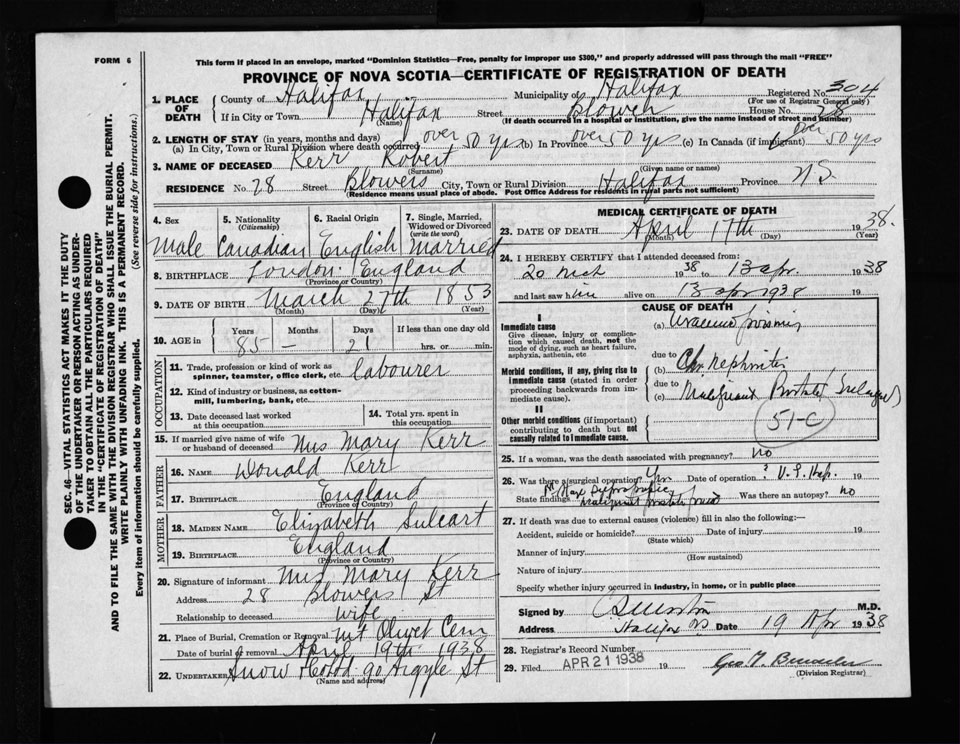 FORM 6
This form if placed in an envelope, marked "Dominion Statistics—Free, penalty for improper use $300," and properly addressed will pass through the mail "FREE"
PROVINCE OF NOVA SCOTIA—CERTIFICATE OF REGISTRATION OF DEATH
SEC. 46—VITAL STATISTICS ACT MAKES IT THE DUTY
OF THE UNDERTAKER OR PERSON ACTING AS UNDER-
TAKER TO OBTAIN ALL THE PARTICULARS REQUIRED
IN THE "CERTIFICATE OF REGISTRATION OF DEATH"
AND TO FILE THE SAME WITH THE DIVISION REGISTRAR WHO SHALL ISSUE THE BURIAL PERMIT.
WRITE PLAINLY WITH UNFADING INK. THIS IS A PERMANENT RECORD.
Every item of information should be carefully supplied. (See reverse side for instructions.)
1. PLACE OF DEATH County of Halifax Municipality of Halifax Registered No. 304
(For use of Registrar General only)
If in City or Town Halifax Street Blowers House No. 28
(Name) (If death occurred in a hospital or institution, give the name instead of street and number)
2. LENGTH OF STAY (in years, months and days)
(a) In City, Town or Rural Division where death occurred over 50 yrs (b) In Province over 50 yrs (c) In Canada (if immigrant) over 50 yrs
3. NAME OF DECEASED Kerr Robert
(Surname) (Given name or names)
RESIDENCE No. 28 Street Blowers City, Town or Rural Division Halifax Province NS
(Residence means usual place of abode. Post Office Address for residents in rural parts not sufficient)
4. Sex 5. Nationality (Citizenship) 6. Racial Origin 7. Single, Married, Widowed or Divorced (write the word)
Male Canadian English Married
8. BIRTHPLACE London. England
(Province or Country)
9. DATE OF BIRTH March 27th 1853
(Month) (Day) (Year)
10. AGE in Years Months Days If less than one day old
85 — 21 hrs. or min.
OCCUPATION
11. Trade, profession or kind of work as spinner, teamster, office clerk, etc. labourer
12. Kind of industry or business, as cotton-mill, lumbering, bank, etc.
13. Date deceased last worked at this occupation 14. Total yrs. spent in this occupation
15. If married give name of wife or husband of deceased Mrs Mary Kerr
FATHER
16. NAME Donald Kerr
17. BIRTHPLACE England
(Province or Country)
MOTHER
18. MAIDEN NAME Elizabeth
19. BIRTHPLACE England
(Province or Country)
20. Signature of informant Mrs Mary Kerr
Address 28 Blowers St
Relationship to deceased wife
21. Place of Burial, Cremation or Removal Mt Olivet Cem
Date of burial or removal April 19th 1938
22. UNDERTAKER Snow &amp; Co Ltd 90 Argyle St
(Name and address)
MEDICAL CERTIFICATE OF DEATH
23. DATE OF DEATH April 17th 1938.
(Month) (Day) (Year)
24. I HEREBY CERTIFY that I attended deceased from:
20 Mch 1938 to 13 apr. 1938
and last saw him alive on 13 apr 1938 19
CAUSE OF DEATH
I
Immediate cause
Give disease, injury or complication which caused death, not the mode of dying, such as heart failure, asphyxia, asthenia, etc
(a)
due to
Morbid conditions, if any, giving rise to immediate cause (stated in order proceeding backwards from immediate cause).
(b) Ch nephritis
due to
(c) Malignant Prostate
II
Other morbid conditions (if important) contributing to death but not causally related to immediate cause.
51-C
25. If a woman, was the death associated with pregnancy? no
26. Was there a surgical operation? Yes Date of operation ? V. G. Hosp. 19
State findings Malignant prostate Was there an autopsy? no
27. If death was due to external causes (violence) fill in also the following:—
Accident, suicide or homicide? Date of injury 19
(State which)
Manner of injury
(How sustained)
Nature of injury
Specify whether injury occurred in industry, in home, or in public place
Signed by M.D.
Address Halifax NS Date 19 Apr 1938
28. Registrar's Record Number
29. Filed APR 21 1938 19 Geo
(Division Registrar)